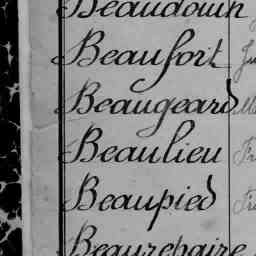 Beaudouin
Beaufort
Beaugeard
Beaulieu
Beaupied
Beaurepaire